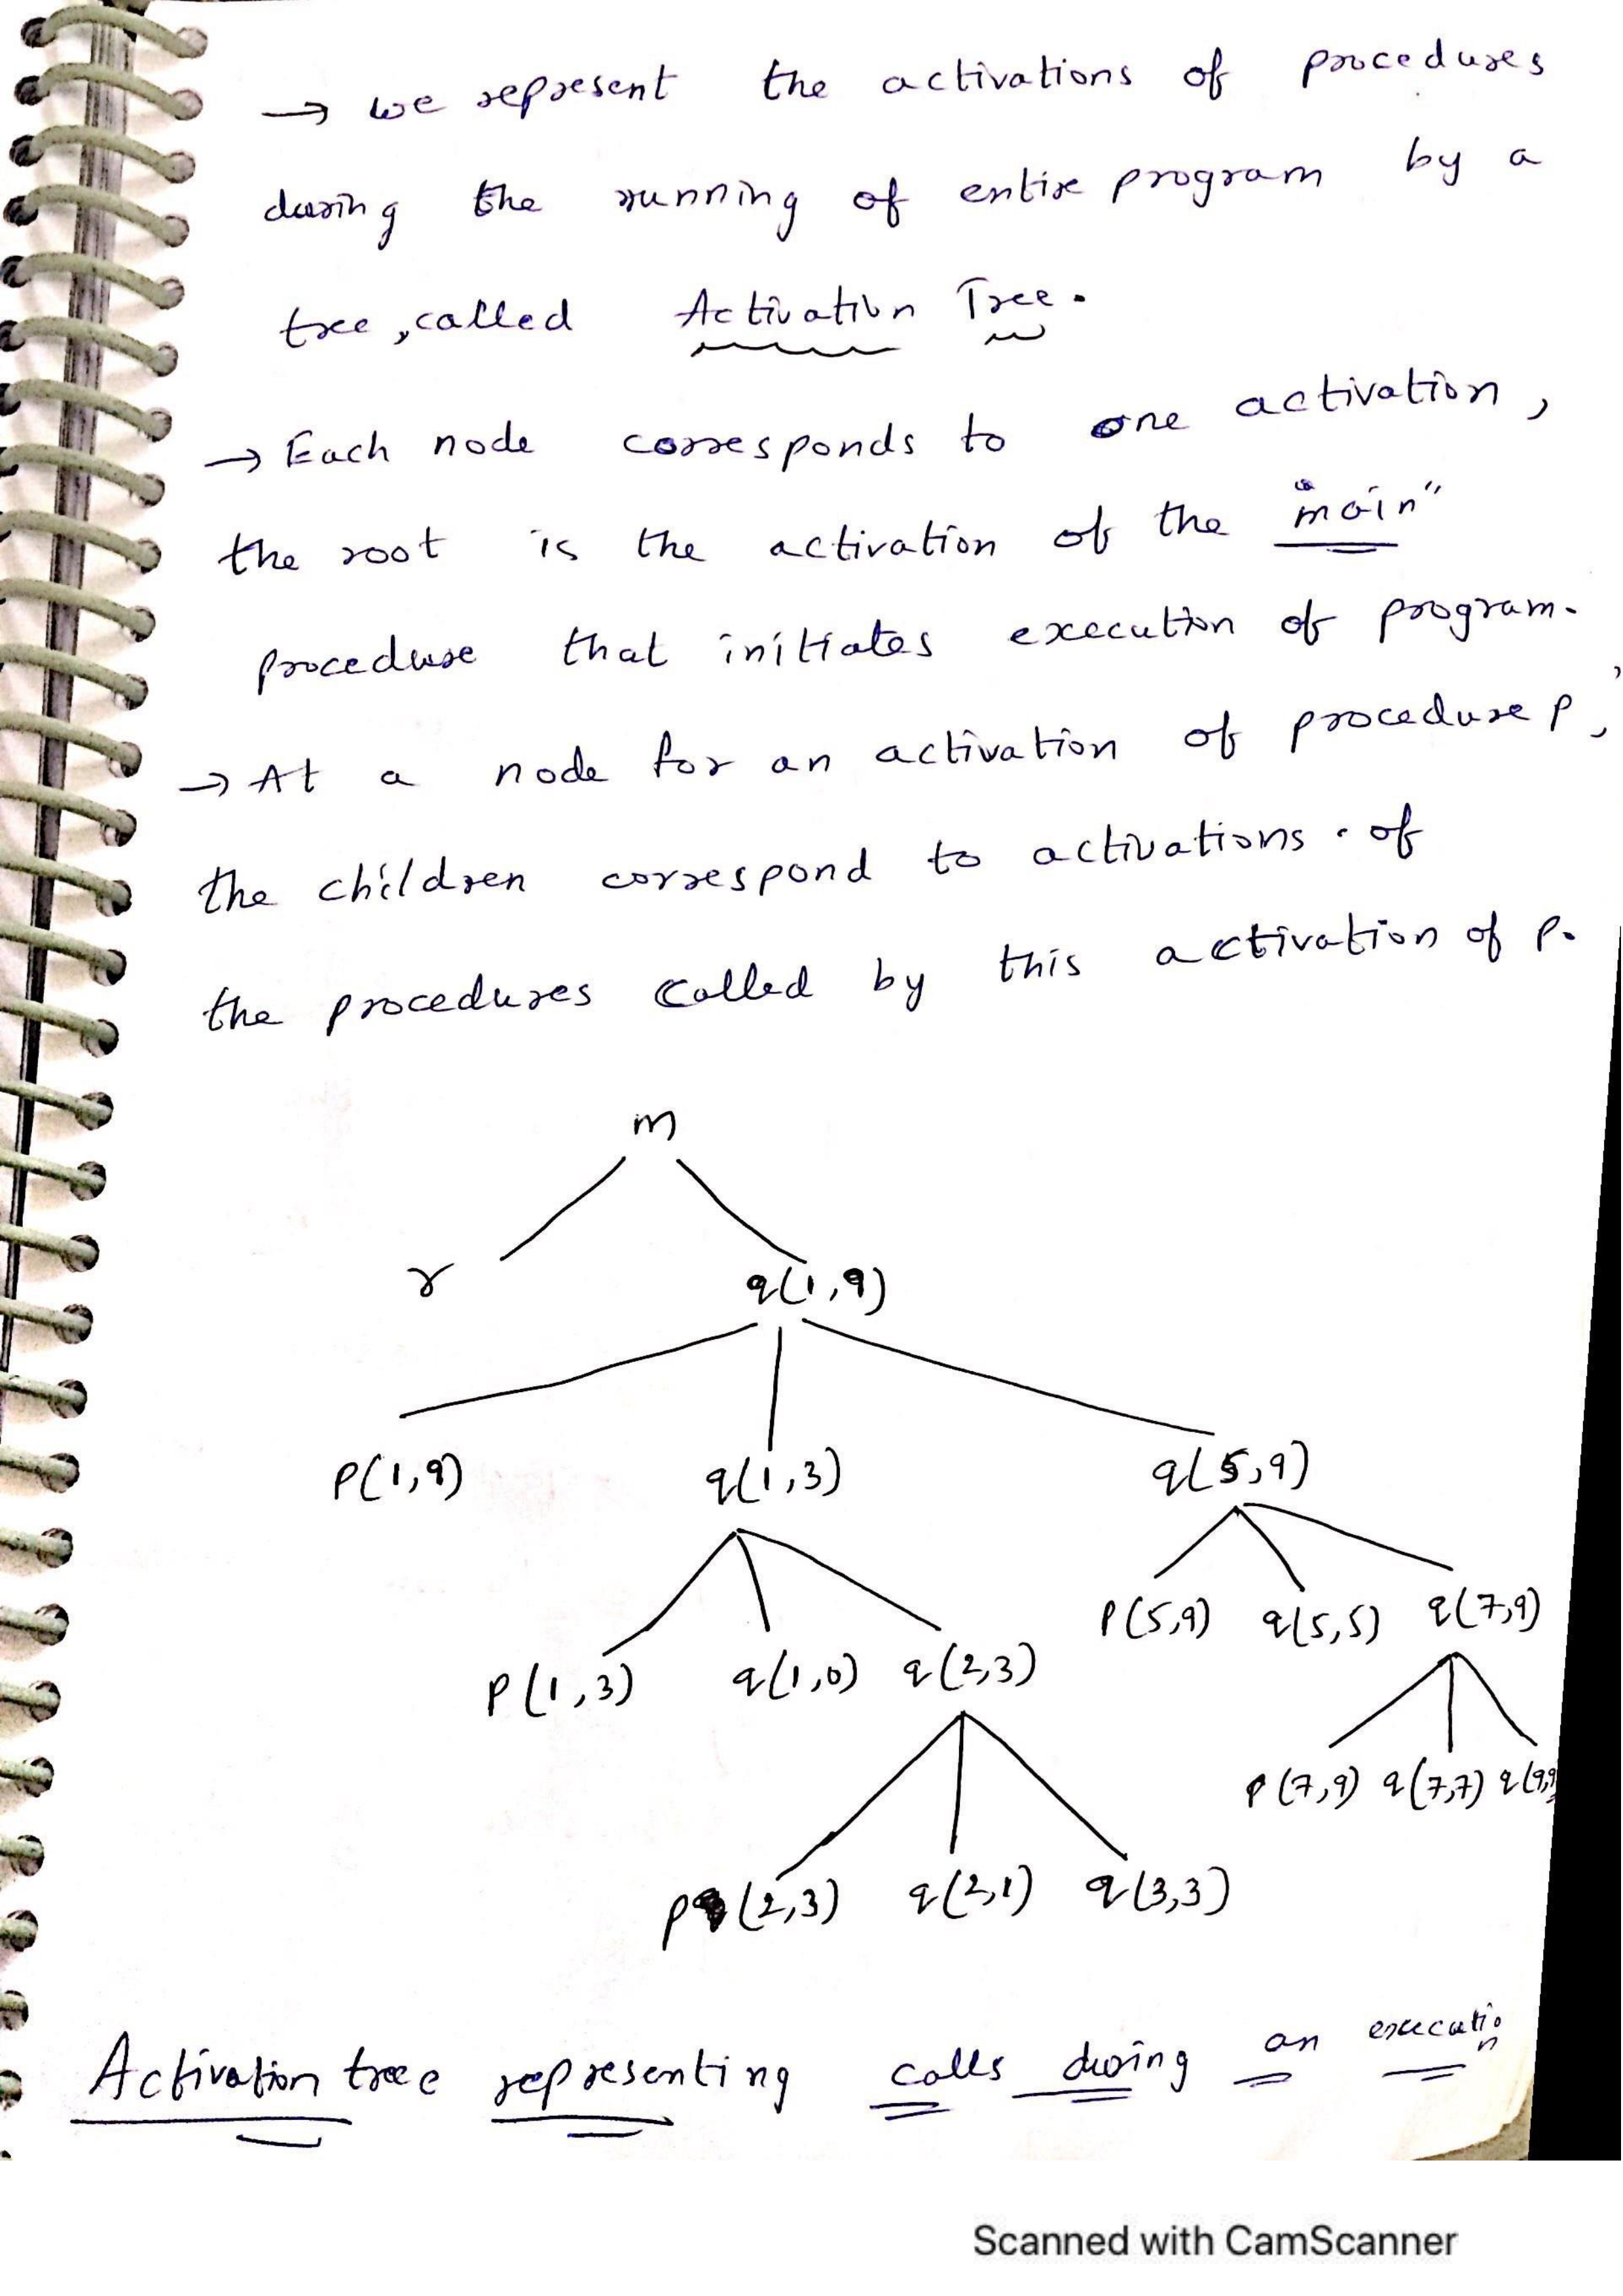 → we represent the activations of procedures
during the running of entire program by a
tree, called Activation Tree.
→ Each node corresponds to one activation,
the root is the activation of the "main"
procedure that initiates execution of program.
→ At a node for an activation of procedure P,
the children correspond to activations of
the procedures called by this activation of P.
m
r q(1,9)
P(1,9) q(1,3) q(5,9)
P(5,9) q(5,5) q(7,9)
P(1,3) q(1,0) q(2,3)
P(7,9) q(7,7) q(9,9
P(2,3) q(2,1) q(3,3)
Activation tree representing calls during an execution
Scanned with CamScanner